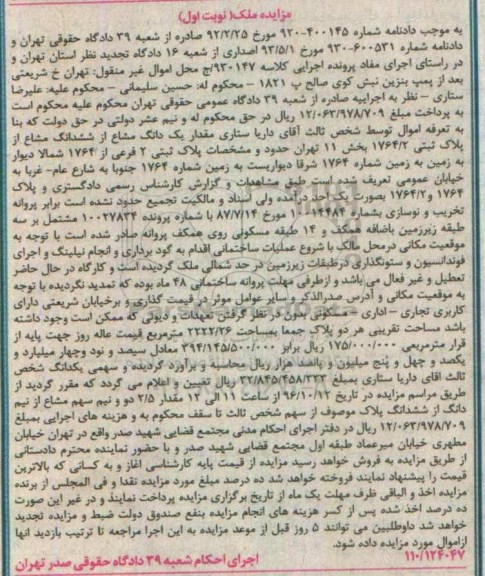 مزایده ملک( نوبت اول)
به موجب دادنامه شماره ۴۰۰۱۴۵-۹۲۰ مورخ ۹۲/۲/۲۵ صادره از شعبه ۳۹ دادگاه حقوقی تهران و
دادنامه شماره ۶۰۰۵۳۱-۹۳۰ مورخ ۹۳/۵/۱ اصداری از شعبه ۱۶ دادگاه تجدید نظر استان تهران و
در راستای اجرای مفاد پرونده اجرایی کلاسه ۹۳۰۱۴۷/ج محل اموال غیر منقول: تهران خ شریعتی
بعد از پمپ بنزین نبش کوی صالح پ ۱۸۲۱ - محکوم له: حسین سلیمانی - محکوم علیه: علیرضا
ستاری - نظر به اجراییه صادره از شعبه ۳۹ دادگاه عمومی حقوقی تهران محکوم علیه محکوم است
به پرداخت مبلغ ۱۲/۰۶۳/۹۷۸/۷۰۹ ریال در حق محکوم له و نیم عشر دولتی در حق دولت که بنا
به تعرفه اموال توسط شخص ثالث آقای داریا ستاری مقدار یک دانگ مشاع از ششدانگ مشاع از
پلاک ثبتی ۱۷۶۴/۲ بخش ۱۱ تهران حدود و مشخصات پلاک ثبتی ۲ فرعی از ۱۷۶۴ شمالا دیوار
به زمین به زمین شماره ۱۷۶۴ شرقا دیواریست به زمین شماره ۱۷۶۴ جنوبا به شارع عام- غربا به
خیابان عمومی تعریف شده است طبق مشاهدات و گزارش کارشناس رسمی دادگستری و پلاک
۱۷۶۴ و ۱۷۶۴/۲ بصورت یک حد درآمده ولی اسناد و مالکیت تجمیع حدود نشده است برابر پروانه
تخریب و نوسازی بشماره ۱۴۴۸۴ مورخ ۸۷/۷/۱۴ با شماره پرونده ۱۰۰۲۷۸۳۴ مشتمل بر سه
طبقه زیرزمین باضافه همکف و ۱۴ طبقه مسکونی روی همکف پروانه صادر شده است با توجه به
موقعیت مکانی درمحل مالک با شروع عملیات ساختمانی اقدام به گود برداری و انجام نیلینگ و اجرای
فوندانسیون و ستونگذاری درطبقات زیرزمین در حد شمالی ملک گردیده است و کارگاه در حال حاضر
تعطیل و غیر فعال می باشد و ازطرفی مهلت پروانه ساختمانی ۴۸ ماه بوده که تمدید نگردیده با توجه
به موقعیت مکانی و آدرس صدرالذکر و سایر عوامل موثر در قیمت گذاری و برخیابان شریعتی دارای
کاربری تجاری - اداری - مسکونی بدون در نظر گرفتن تعهدات و دیونی که ممکن است وجود داشته
باشد مساحت تقریبی هر دو پلاک جمعا بمساحت ۲۲۲۲/۲۶ مترمربع قیمت عاله روز جهت پایه از
قرار مترمربعی ۱۷۵/۰۰۰/۰۰۰ ریال برابر ۳۹۴/۱۴۵/۵۰۰/۰۰۰ معادل سیصد و نود وچهار میلیارد و
یکصد و چهل و پنج میلیون و پانصد هزار ریال محاسبه و برآورد گردیده و سهمی یکدانگ شخص
ثالث اقای داریا ستاری بمبلغ ۳۲/۸۴۵/۴۵۸/۳۳۳ ریال تعیین و اعلام می گردد که مقرر گردید از
طریق مراسم مزایده در تاریخ ۹۶/۱۰/۱۲ از ساعت ۱۱ الی ۱۲ مقدار ۲/۵ دو و نیم سهم مشاع از نیم
دانگ از ششدانگ پلاک موصوف از سهم شخص ثالث تا سقف محکوم به و هزینه های اجرایی بمبلغ
۱۲/۰۶۳/۹۷۸/۷۰۹ ریال در دفتر اجرای احکام مدنی مجتمع قضایی شهید صدر واقع در تهران خیابان
مطهری خیابان میرعماد طبقه اول مجتمع قضایی شهید صدر و با حضور نماینده محترم دادستانی
از طریق مزایده به فروش خواهد رسید مزایده از قیمت پایه کارشناسی اغاز و به کسانی که بالاترین
قیمت را پیشنهاد نمایند فروخته خواهد شد ده درصد مبلغ مورد مزایده نقدا و فی المجلس از برنده
مزایده اخذ و الباقی ظرف مهلت یک ماه از تاریخ برگزاری مزایده پرداخت نمایند و در غیر این صورت
ده درصد اخذ شده پس از کسر هزینه های انجام مزایده بنفع صندوق دولت ضبط و مزایده تجدید
خواهد شد داوطلبین می توانند ۵ روز قبل از موعد مزایده به این اجرا مراجعه تا ترتیب بازدید انها
ازاموال مورد مزایده داده شود.
۱۱۰/۱۲۴۰۴۷ اجرای احکام شعبه ۳۹ دادگاه حقوقی صدر تهران